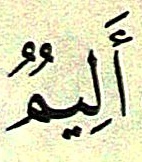 أَلِيمُُ